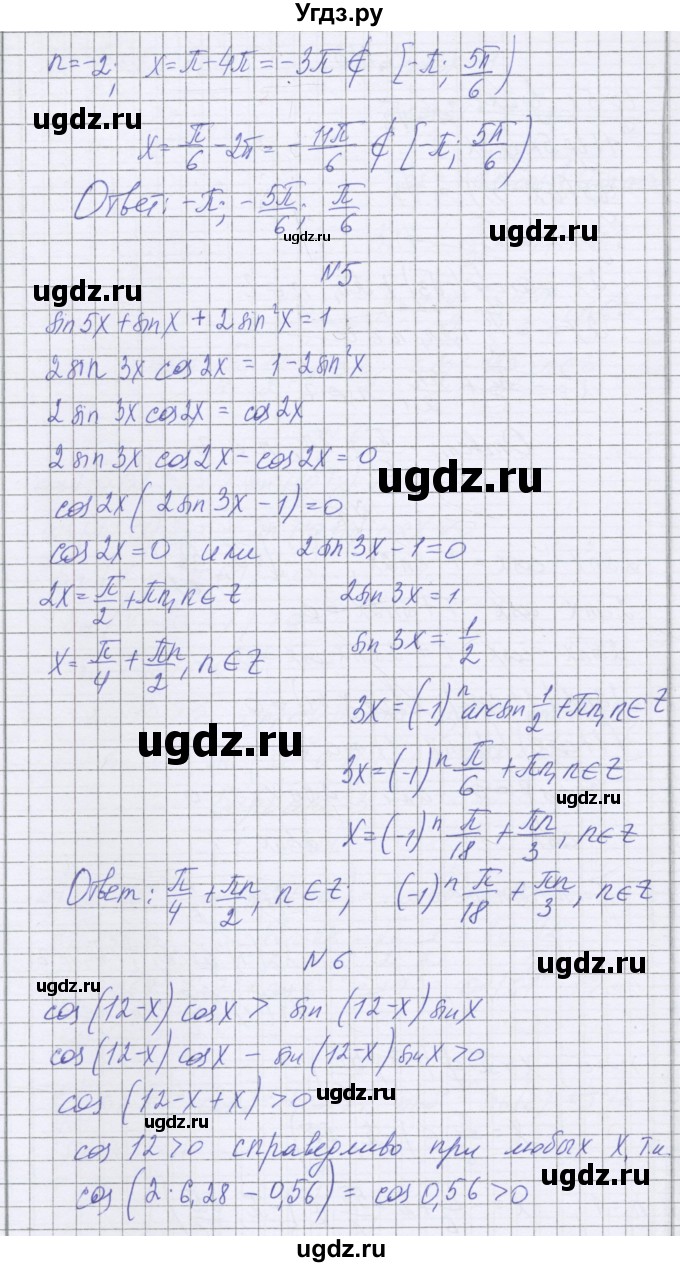 Угдз.ру
n=-2; x=π-4π=-3π ∉ [-π; 5π/6)
ugdz.ru
x=π/6-2π=-11π/6 ∉ [-π; 5π/6)
Ответ: -π; -5π/6; π/6
ugdz.ru
ugdz.ru
N5
ugdz.ru
sin5x+sinx+2sin²x=1
2sin3x cos2x=1-2sin²x
2sin3xcos2x=cos2x
2sin3x cos2x-cos2x=0
ugdz.ru
cos2x(2sin3x-1)=0
cos2x=0 или 2sin3x-1=0
2x=π/2+πn, n∈Z 2sin3x=1
x=π/4+πn/2, n∈Z sin3x=1/2
3x=(-1)ⁿarcsin1/2+πn, n∈Z
ugdz.ru
3x=(-1)ⁿ π/6+πn, n∈Z
ugdz.ru
x=(-1)ⁿ π/18+πn/3, n∈Z
Ответ: π/4+πn/2, n∈Z; (-1)ⁿ π/18+πn/3, n∈Z
N6
ugdz.ru
ugdz.ru
cos(12-x)cosx> sin(12-x)sinx
cos(12-x)cosx-sin(12-x)sinx>0
cos(12-x+x)>0
ugdz.ru
cos12>0 справедливо при любых x, т.к.
ugdz.ru
cos(2·6,28-0,56)=cos0,56>0
ugdz.ru
ugdz.ru